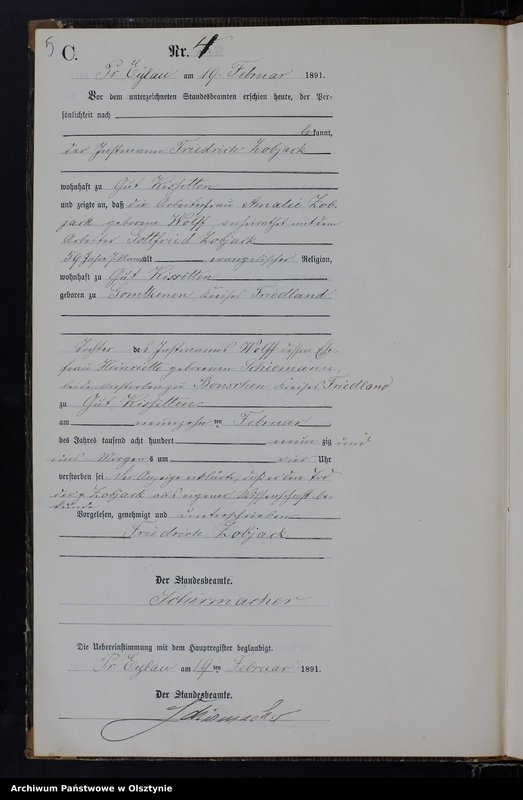 5 C. Nr. 4
Pr. Eylau am 19. Februar 1891.
Vor dem unterzeichneten Standesbeamten erschien heute, der Per-
sönlichkeit nach
bekannt,
der Instmann Friedrich Zobjack
wohnhaft zu Gut Kissitten
und zeigte an, daß die Arbeiterfrau Amalie Zob-
jack geborene Wolff, verheirathet mit dem
Arbeiter Gottfried Zobjack
59 Jahre alt evangelischer Religion,
wohnhaft zu Gut Kissitten
geboren zu Kreises Friedland
Tochter des Instmanns Wolff dessen Ehe-
frau Henriette geborenen Schiemann,
beide verstorben zu Kreises Friedland
zu Gut Kissitten
am neunzehnten Februar
des Jahres tausend acht hundert neunzig und
eins Morgens um vier Uhr
verstorben sei. Der Anzeigende erklärte, daß er den Tod
der Zobjack aus eigener Wissenschaft be-
kunde
Vorgelesen, genehmigt und unterschrieben
Friedrich Zobjack
Der Standesbeamte.
Schirmacher
Die Uebereinstimmung mit dem Hauptregister beglaubigt.
Pr. Eylau am 19ten Februar 1891.
Der Standesbeamte.
Schirmacher
Archiwum Państwowe w Olsztynie